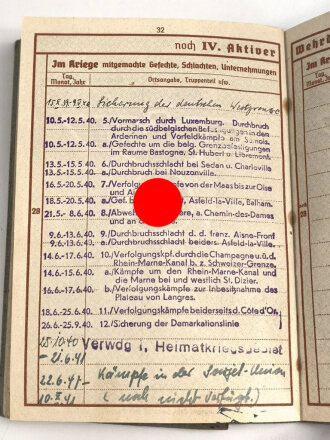 32
noch IV. Aktiver
Im Kriege mitgemachte Gefechte, Schlachten, Unternehmungen
Tag, Monat, Jahr
Ortsangabe, Truppenteil usw.
Sicherung der deutschen Westgrenze
10.5.-12.5. 40. 5./Vormarsch durch Luxemburg. Durchbruch
durch die südbelgischen Befestigungen in den
Ardennen und Vorfeldkämpfe am Semois.
10.5.-12.5. 40. a./Gefechte um die belg. Grenzbefestigungen
im Raume Bastogne, St. Hubert u. Libremont.
13.5.-15.5 40. 6./Durchbruchsschlacht bei Sedan u. Charleville
13.5.-15.5 40. a./Durchbruch bei Nouzonville.
16.5.-20.5. 40. 7./Verfolgungskämpfe von der Maas bis zur Oise
und
18.5.-20.5 40. a./Gef. Asfeld-la-Ville, Balham.
21.5.- 8.6. 40 8./Abweh a. Chemin-des-Dames
und an
28
9.6.-13.6. 40 9./Durchbruchschlacht a. d. franz. Aisne-Front
9.6.-13.6. 40 a./Durchbruchschlacht beiders. Asfeld-la-Ville.
14.6.-17.6. 40. 10./Verfolgungskpf. durch die Champagne u. ü. d.
Rhein-Marne-Kanal b. z. Schweizer-Grenze.
14.6.-15.6. 40 a./Kämpfe um den Rhein-Marne-Kanal und
die Marne bei und westlich St. Dizier.
16.6.-17.6. 40 b./Verfolgungskämpfe zur Inbesitznahme des
Plateau von Langres.
18.6.-25.6. 40. 11./Verfolgungskämpfe beiderseits d. Côte d'Or.
26.6.-25.9. 40. 12./Sicherung der Demarkationslinie
Verwdg i, Heimatkriegsgebiet
- 21.6.41
22.6.41- Kämpfe in der Sowjet-Union
(noch nicht verfügt.)
Wehrd
28